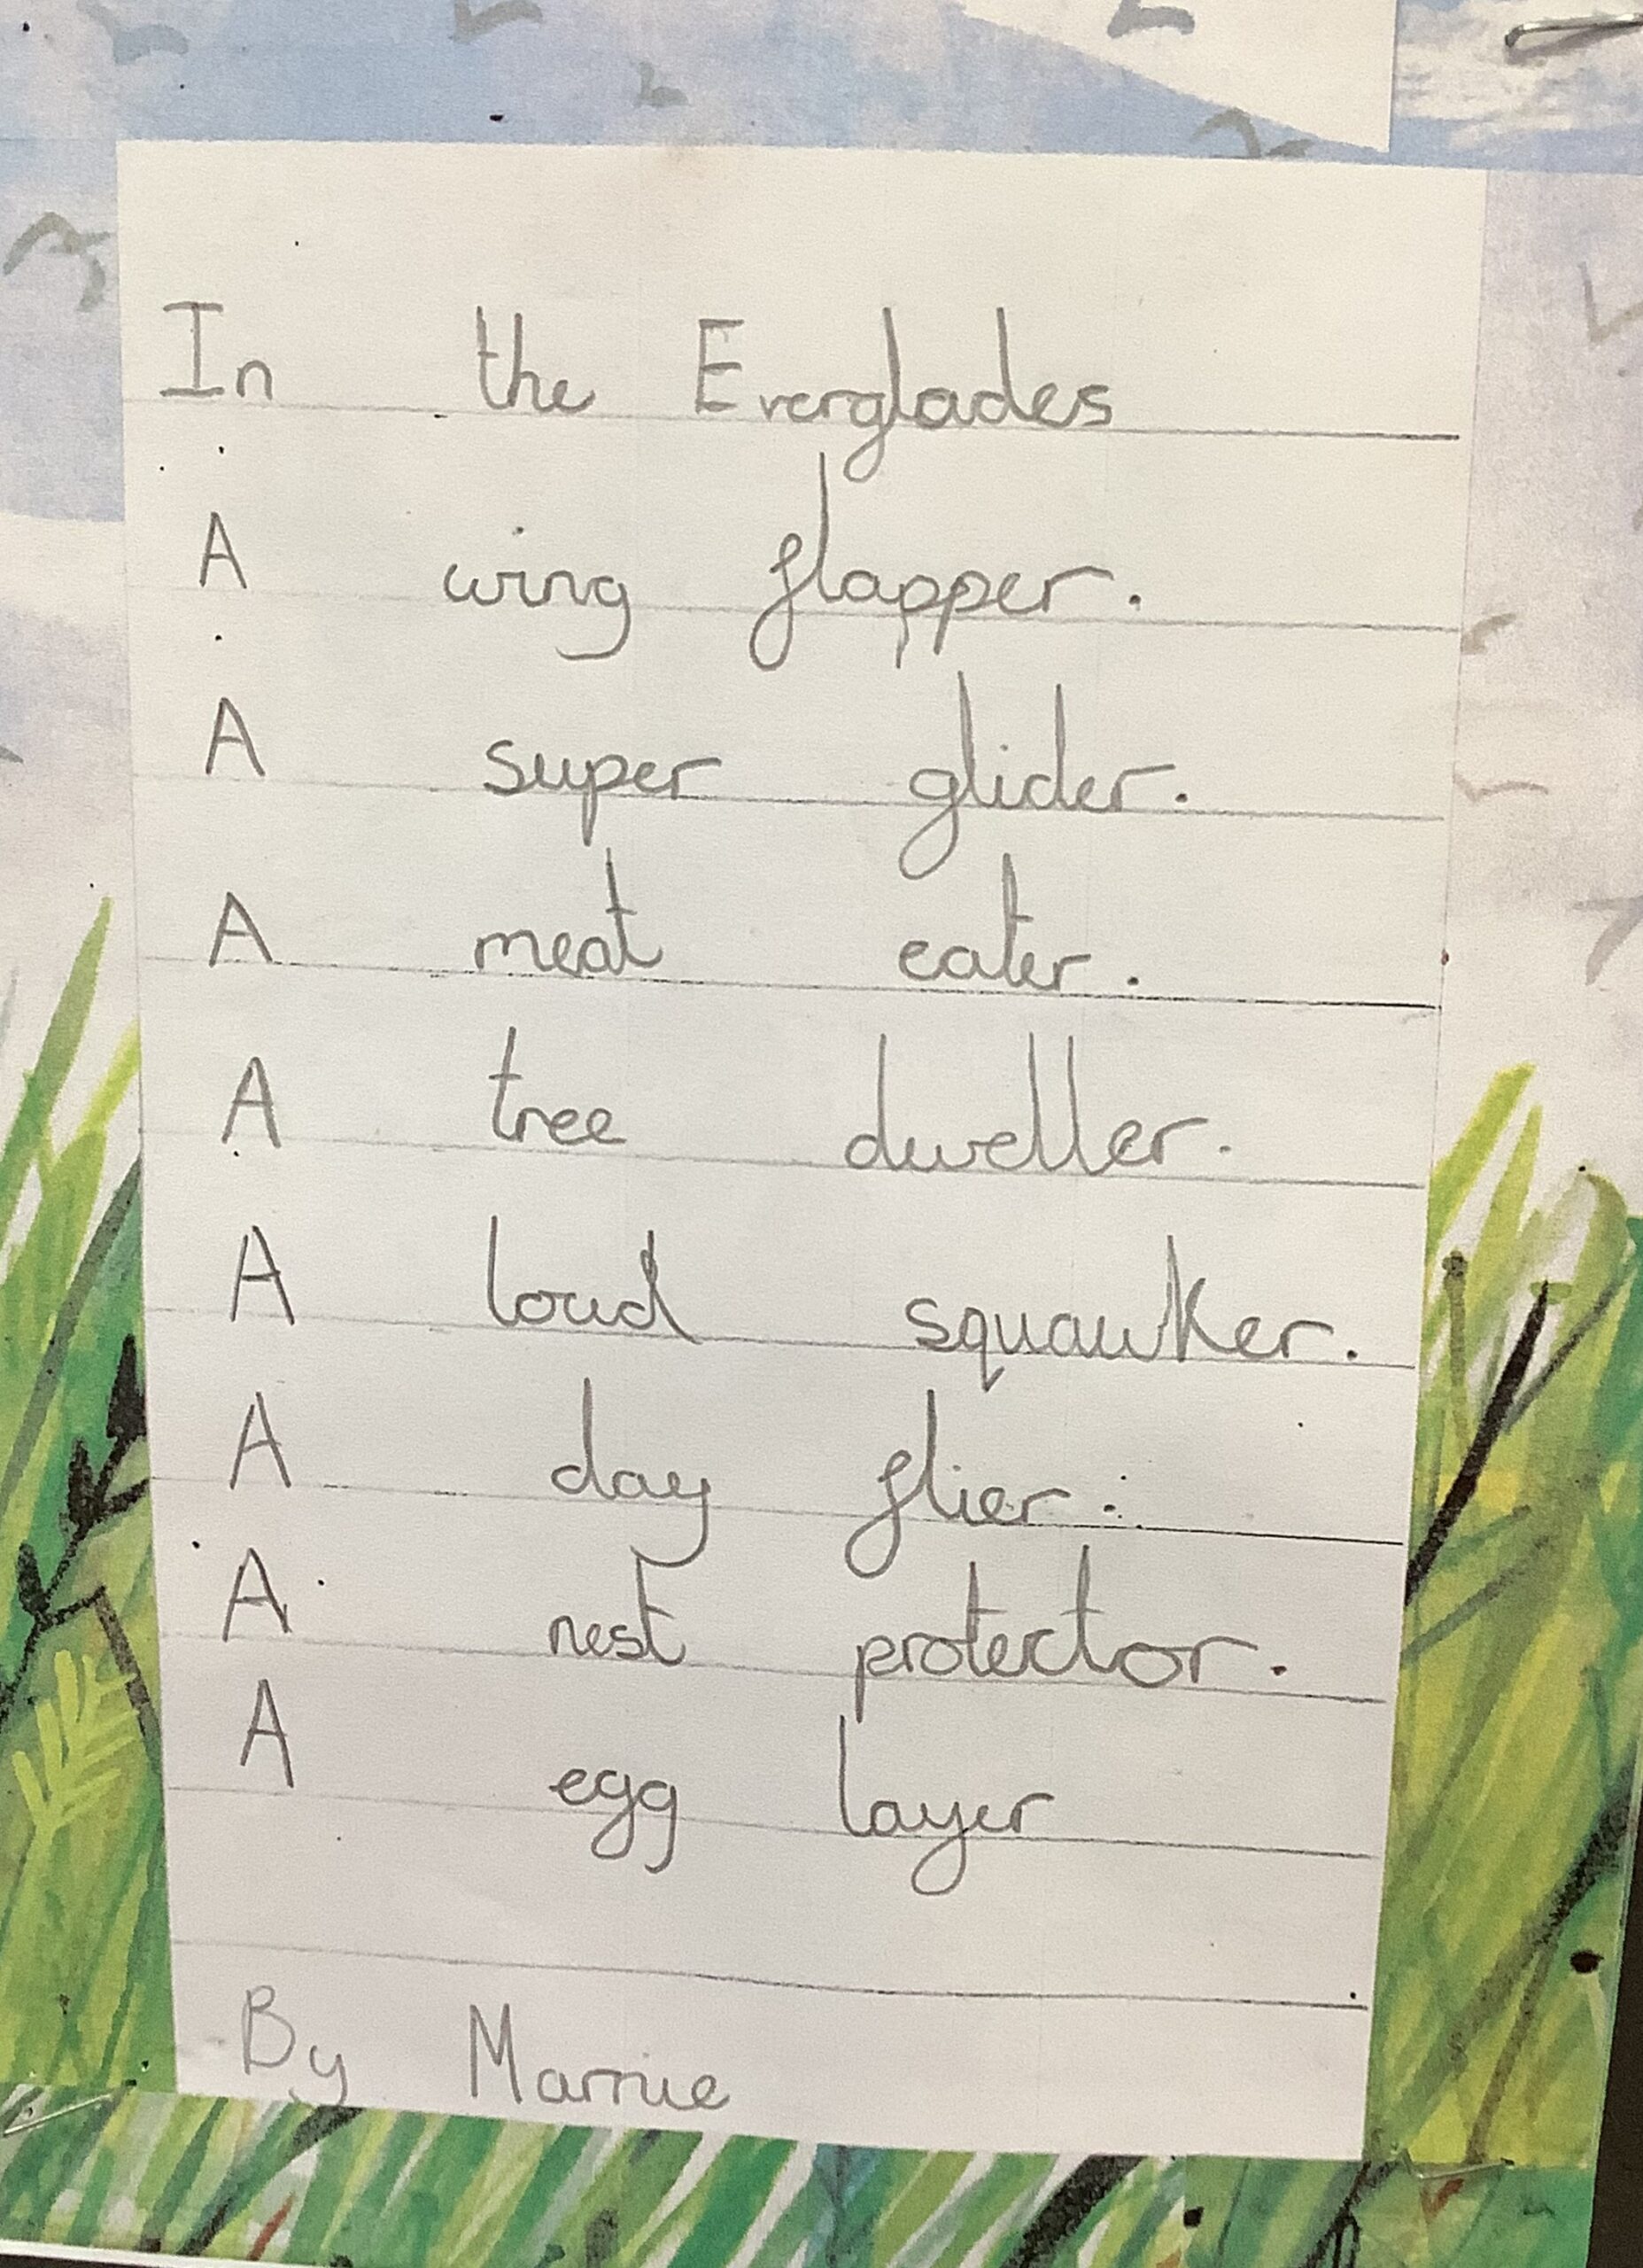 In the Everglades
A wing flapper.
A super glider.
A meat eater.
A tree dweller.
A loud squawker.
A day flier.
A nest protector.
A egg layer
By Marnie